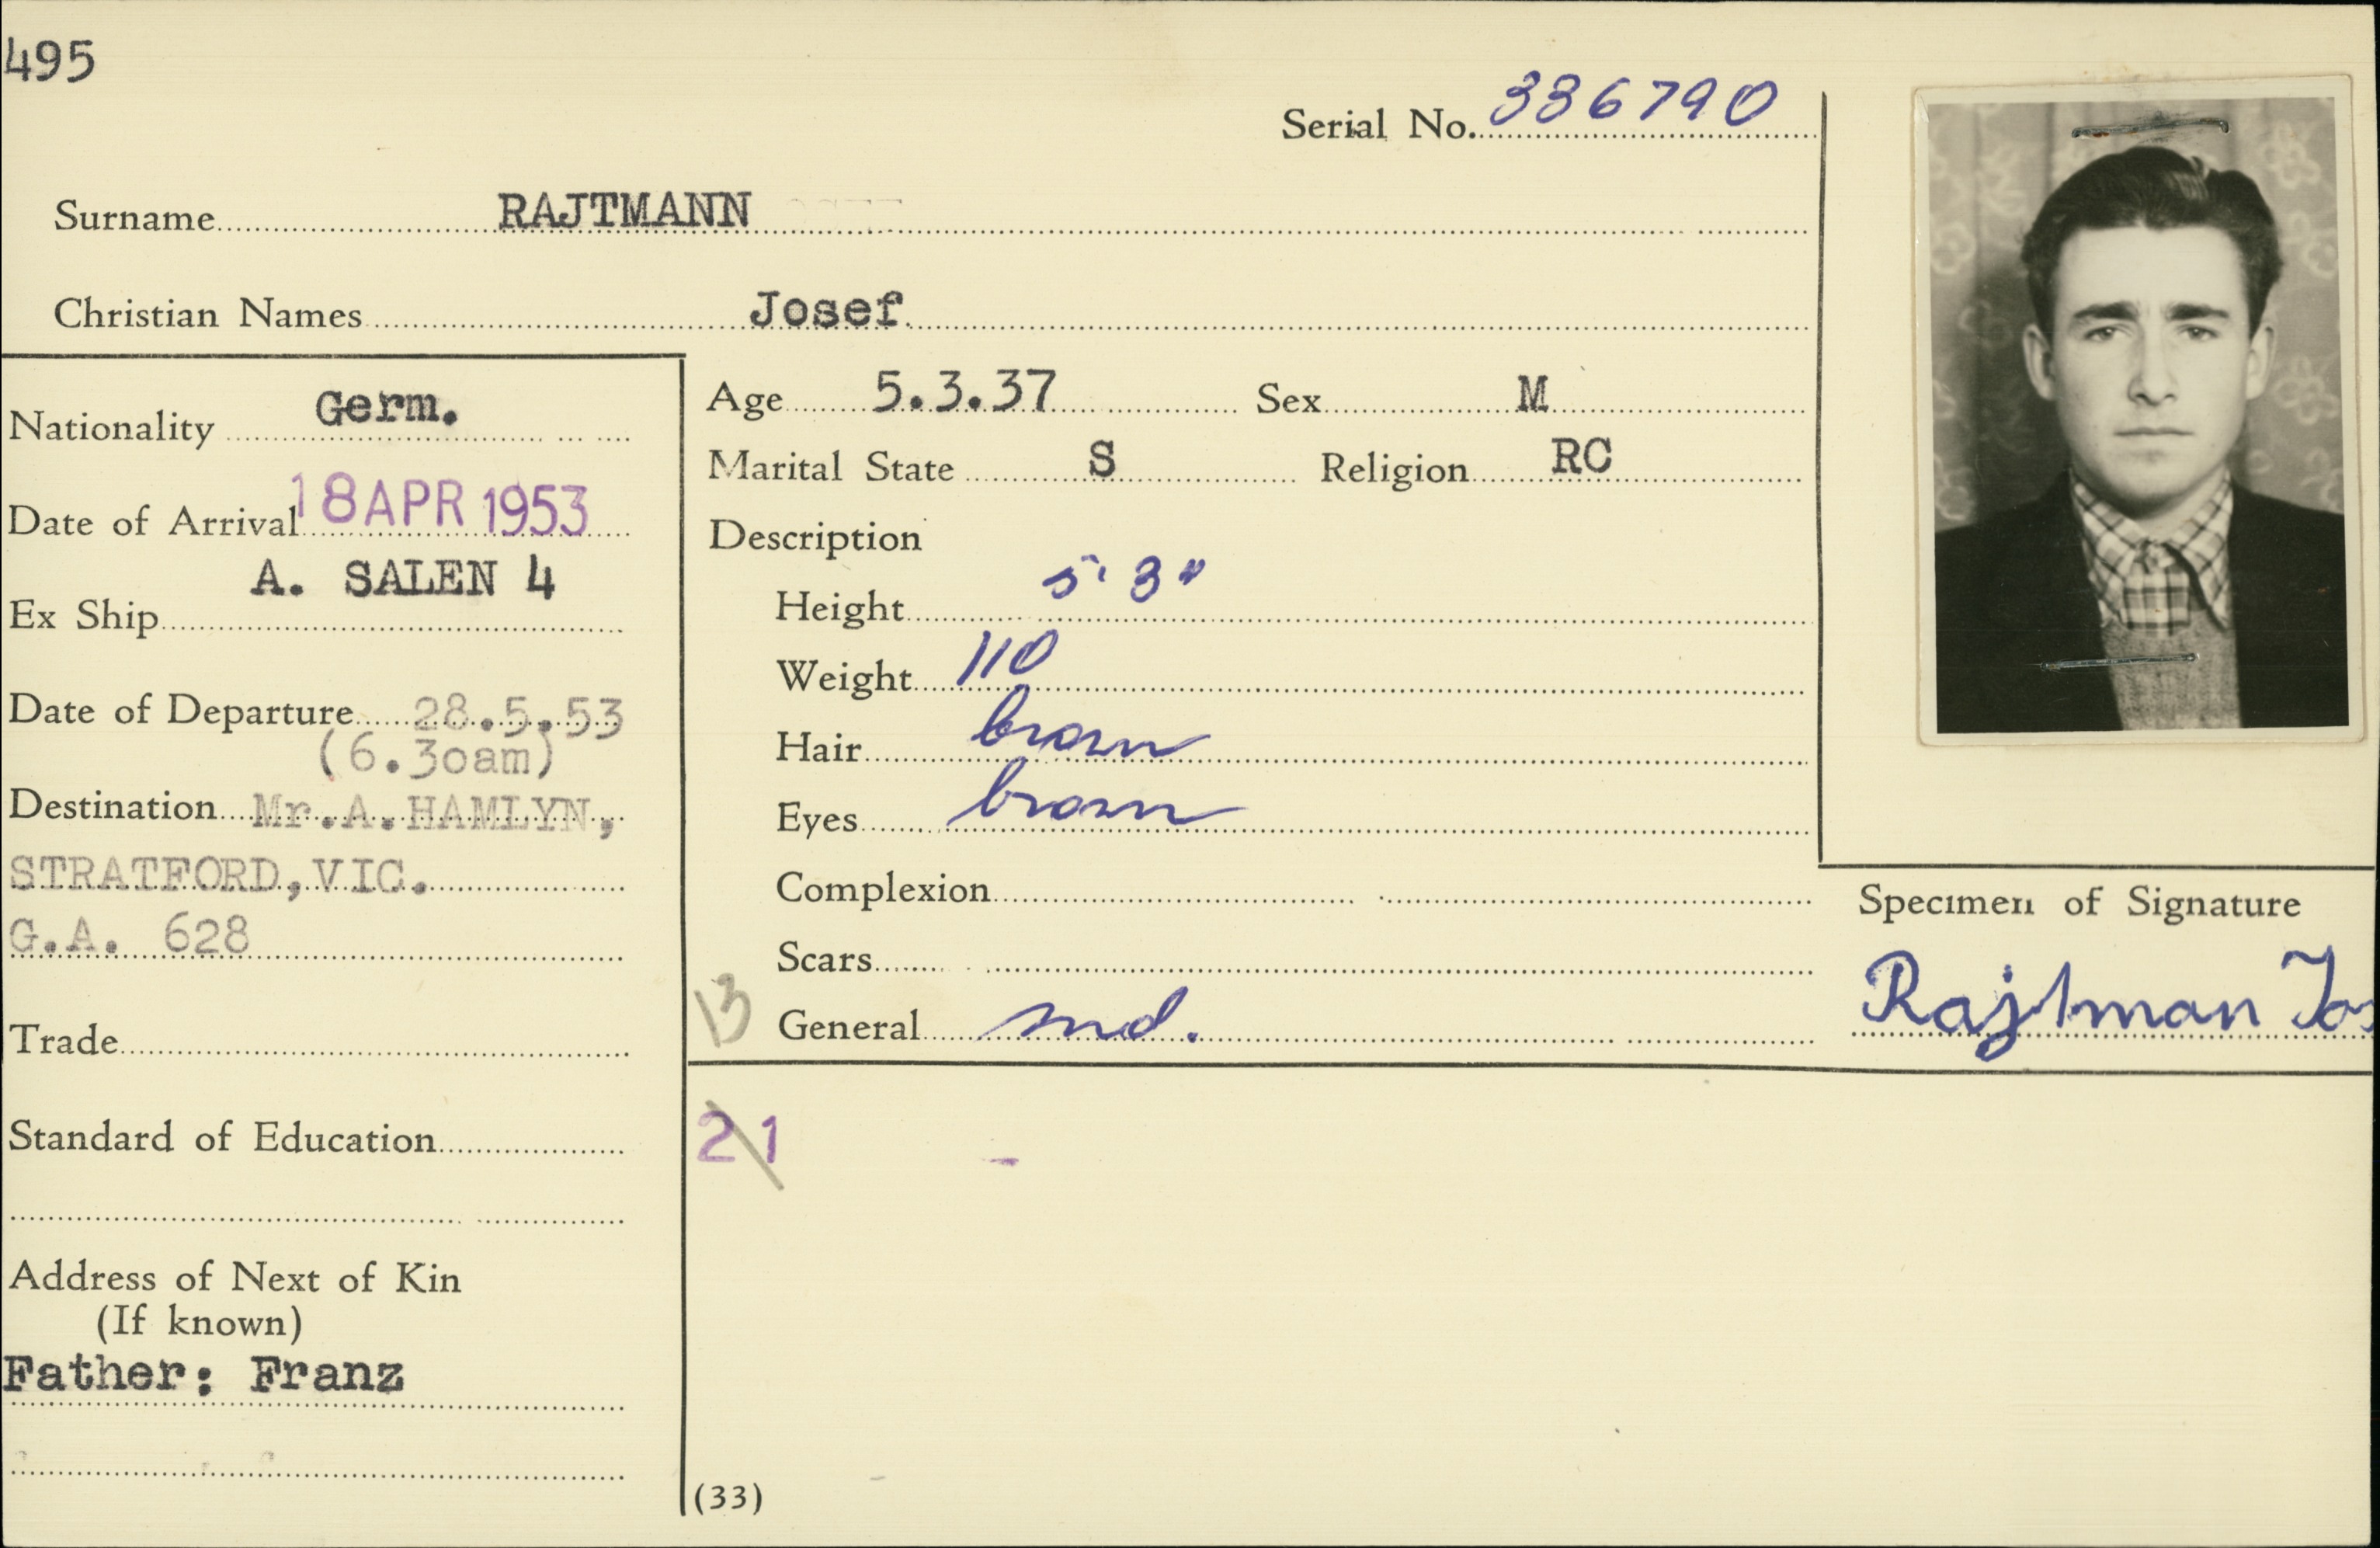 495
Serial No. 336790
Surname RAJTMANN
Christian Names Josef
Nationality Germ.
Date of Arrival 18 APR 1953
Ex Ship A. SALEN 4
Date of Departure 28.5.53
(6.30am)
Destination Mr.A.HAMLYN,
STRATFORD,VIC.
G.A. 628
Trade
Standard of Education
Address of Next of Kin
(If known)
Father: Franz
Age 5.3.37 Sex M
Marital State S Religion RC
Description
Height 5' 3"
Weight 110
Hair brown
Eyes brown
Complexion
Scars
13
General md.
21
(33)
Specimen of Signature
Rajtman Jos